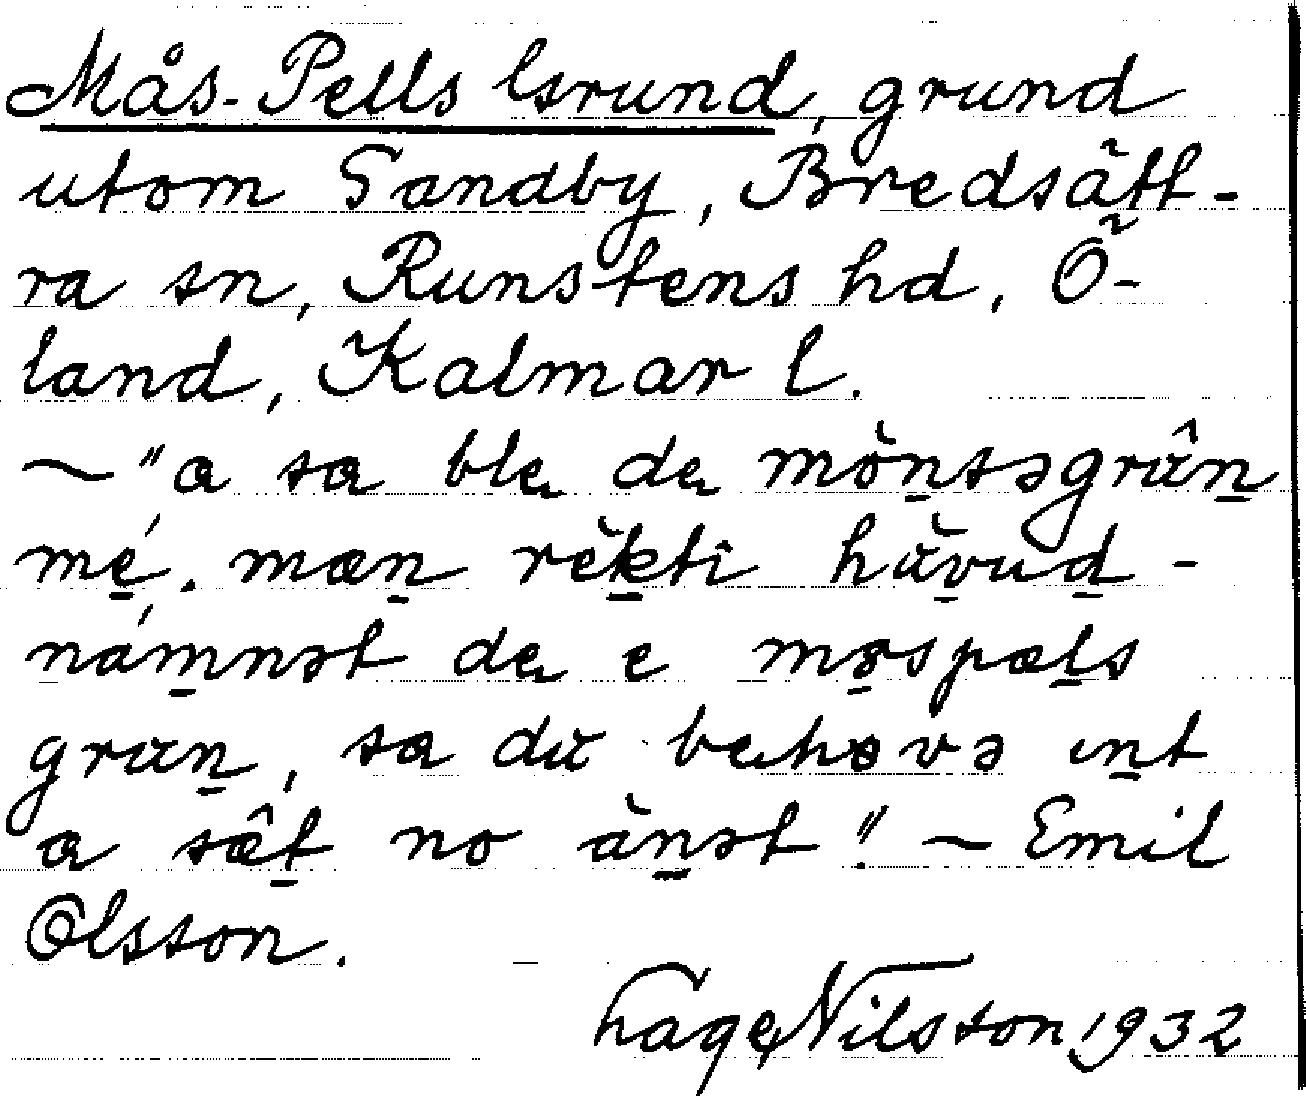 Mås-Pells Grund, grund
utom Sandby, Bredsätt-
ra sn, Runstens hd, Ö-
land, Kalmar l.
~ "a sa ble de mònsəgrûn
mé. mæn rèkti hùvud-
námnət de e møspæls
grun, sa du behøvə ınt
a sæ̂t no ànət". ~ Emil
Olsson.
Hage Nilsson 1932